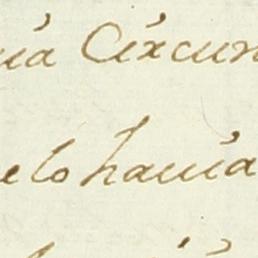 uia Circun
elo hauia